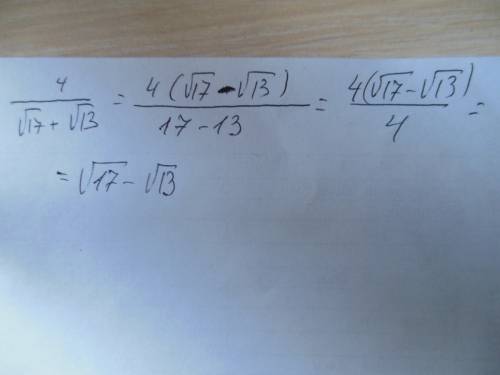 4/(√17 + √13) = 4(√17 - √13)/(17 - 13) = 4(√17 - √13)/4 =
= √17 - √13